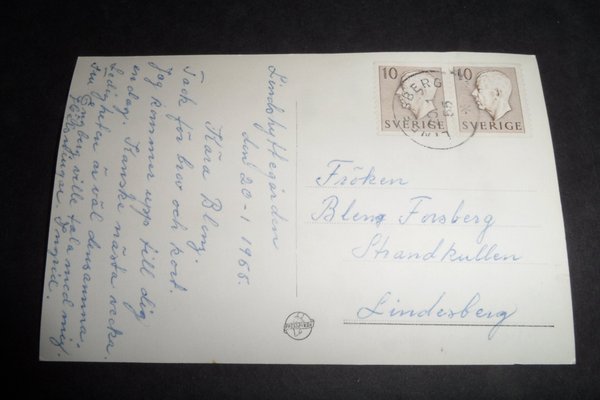 Lindshyttegården
den 20-1 1955.
Kära Bleng.
Tack för brev och kort.
Jag kommer upp till dig
en dag. Kanske nästa vecka.
Ledigheten är väl densamma.
Fru Engberg ville tala med mig.
Hälsningar Ingrid.
10
SVERIGE
10
SVERIGE
Fröken
Bleng Forsberg
Strandkullen
Lindesberg